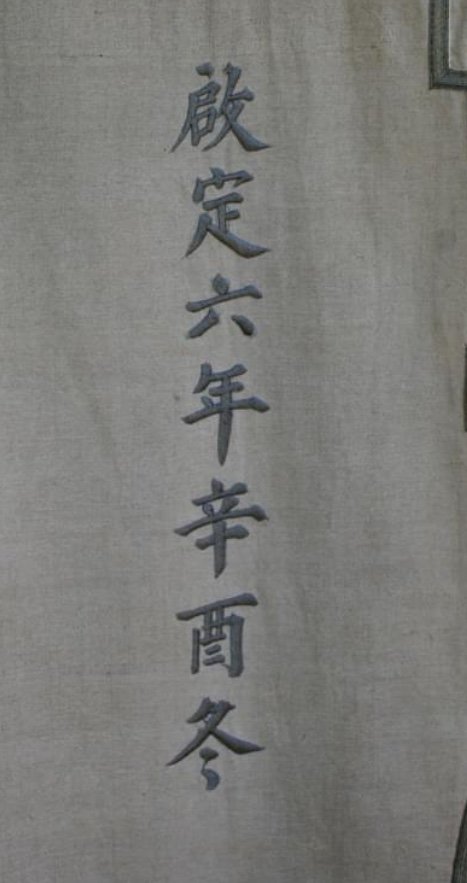 啟定六年辛酉冬